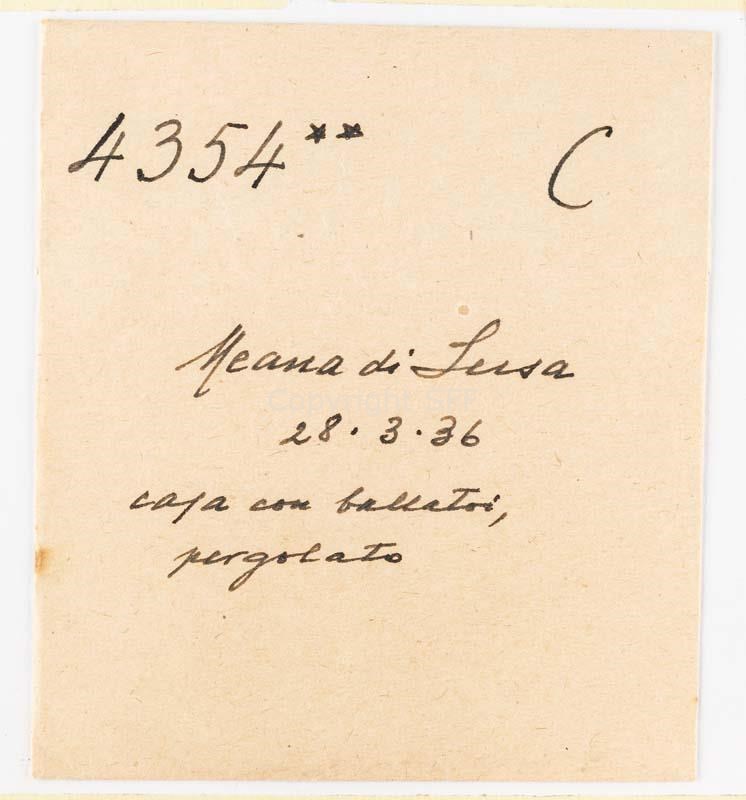 4354** C
Meana di Susa
Copyright SFF
28.3.36
casa con ballatoi,
pergolato